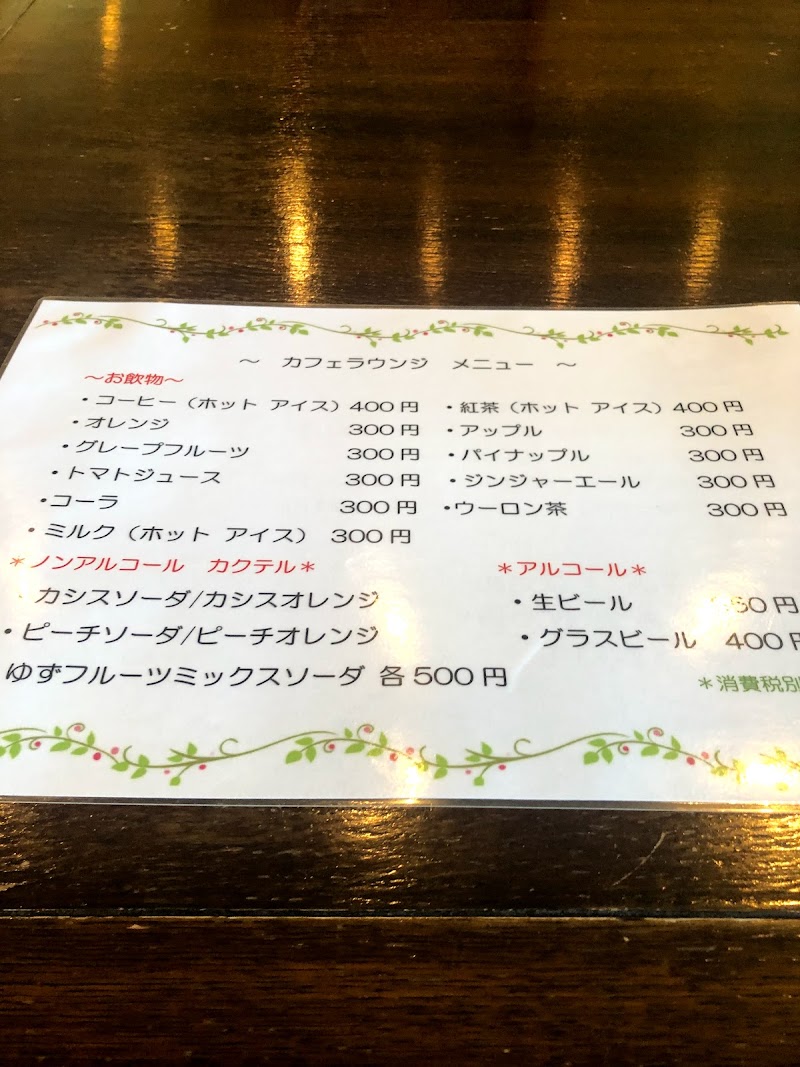 ～ カフェラウンジ メニュー ～
～お飲物～
・コーヒー（ホット アイス）400円 ・紅茶（ホット アイス）400円
・オレンジ 300円 ・アップル 300円
・グレープフルーツ 300円 ・パイナップル 300円
・トマトジュース 300円 ・ジンジャーエール 300円
・コーラ 300円 ・ウーロン茶 300円
・ミルク（ホット アイス） 300円
＊ノンアルコール カクテル＊
カシスソーダ/カシスオレンジ
・ピーチソーダ/ピーチオレンジ
ゆずフルーツミックスソーダ 各500円
＊アルコール＊
・生ビール 円
・グラスビール 400円
＊消費税別